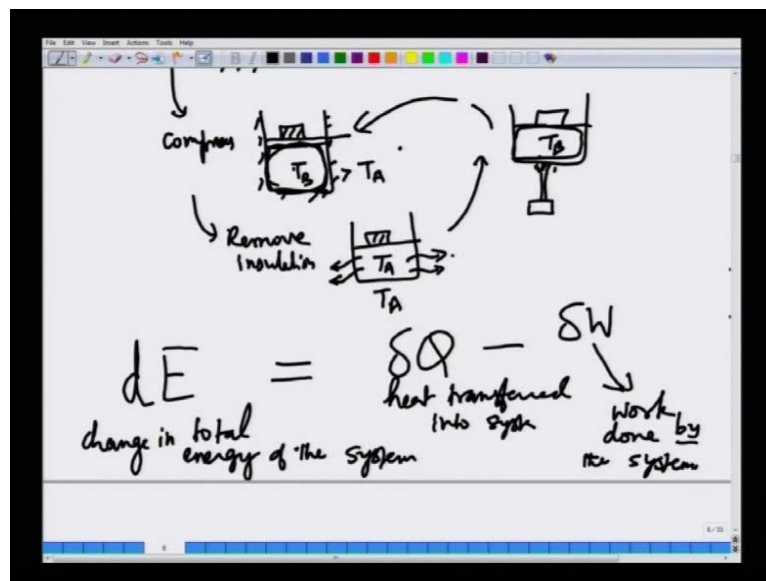 File Edit View Insert Actions Tools Help
Compress
T_B
T_A
T_B
Remove
Insulation
T_A
T_A
dE = δQ − δW
change in total
energy of the system
heat transferred
into system
work
done by
the system